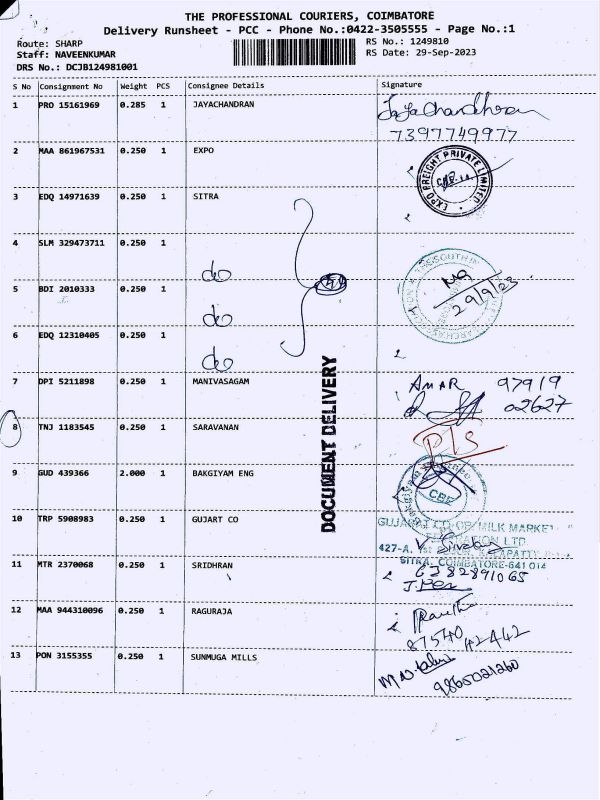 THE PROFESSIONAL COURIERS, COIMBATORE
Delivery Runsheet - PCC - Phone No.:0422-3505555 - Page No.:1
Route: SHARP
RS No.: 1249810
Staff: NAVEENKUMAR
RS Date: 29-Sep-2023
DRS No.: DCJB124981001
S No Consignment No Weight PCS Consignee Details Signature
1 PRO 15161969 0.285 1 JAYACHANDRAN Jayachandhran
7397749977
2 MAA 861967531 0.250 1 EXPO
EXPO FREIGHT PRIVATE LIMITED
3 EDQ 14971639 0.250 1 SITRA
4 SLM 329473711 0.250 1 do
29/9/23
5 BDI 2010333 0.250 1 do
6 EDQ 12310405 0.250 1 do
7 DPI 5211898 0.250 1 MANIVASAGAM AMAR 97919
02627
DOCUMENT DELIVERY
8 TNJ 1183545 0.250 1 SARAVANAN
9 GUD 439366 2.000 1 BAKGIYAM ENG
CBE
10 TRP 5908983 0.250 1 GUJART CO
GUJARAT CO-OP MILK MARKET
LTD
427-A,
SITRA, COIMBATORE-641 014
11 MTR 2370068 0.250 1 SRIDHRAN 6382891065
12 MAA 944310096 0.250 1 RAGURAJA
87540 42442
13 PON 3155355 0.250 1 SUNMUGA MILLS
9865021260